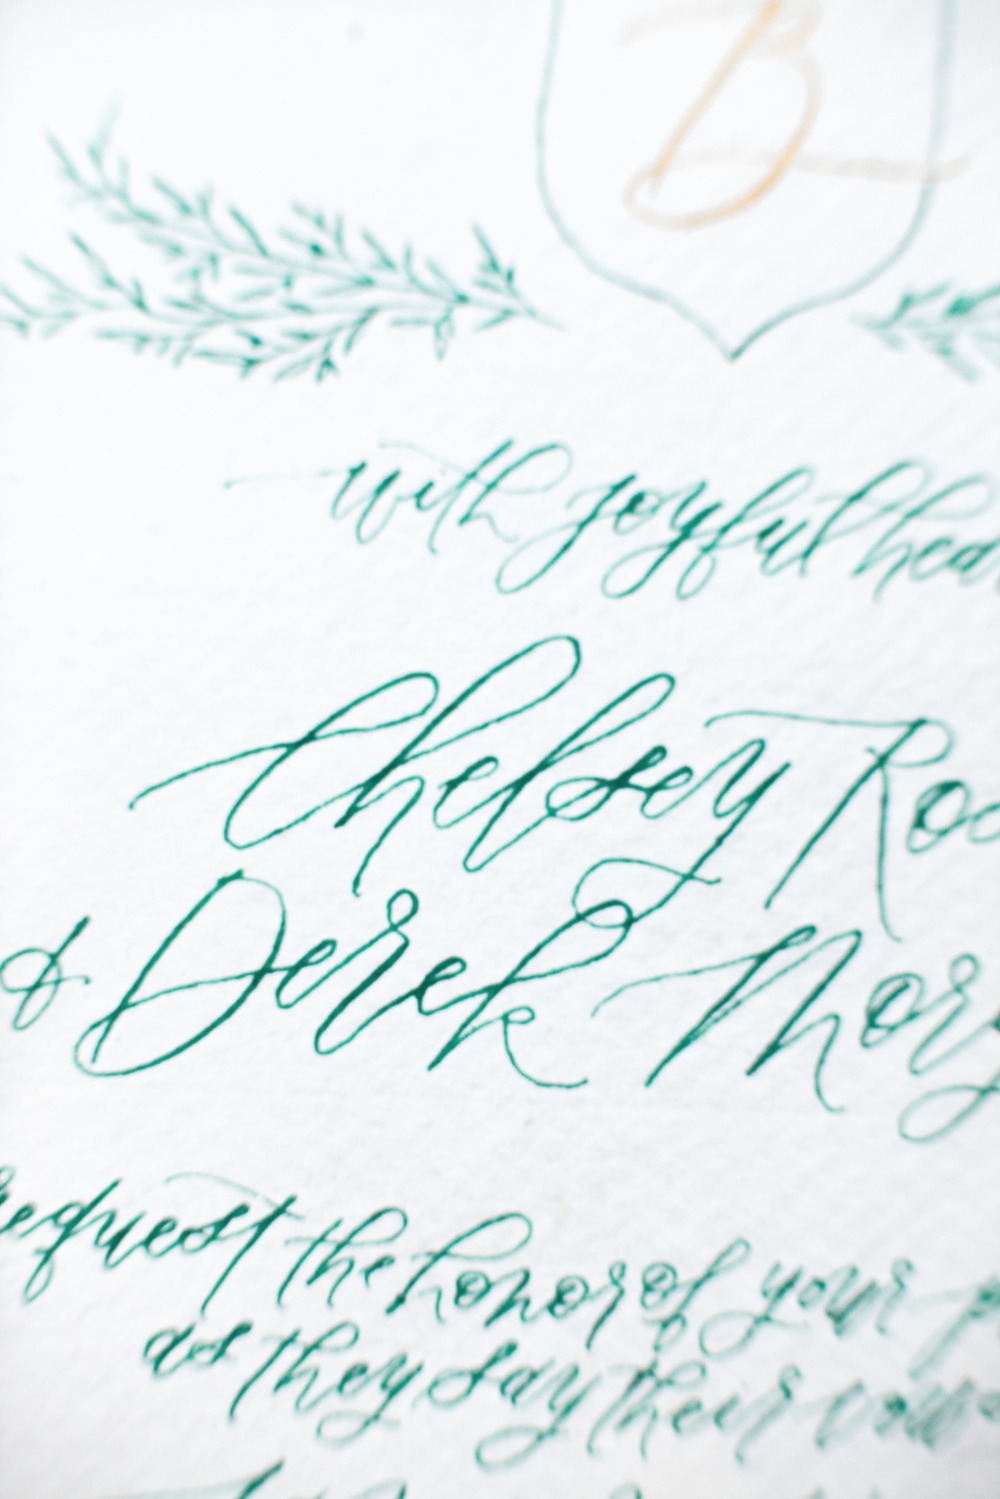 B
with joyful hea
Chelsey Roo
& Derek Morg
request the honor of your p
as they say their vows